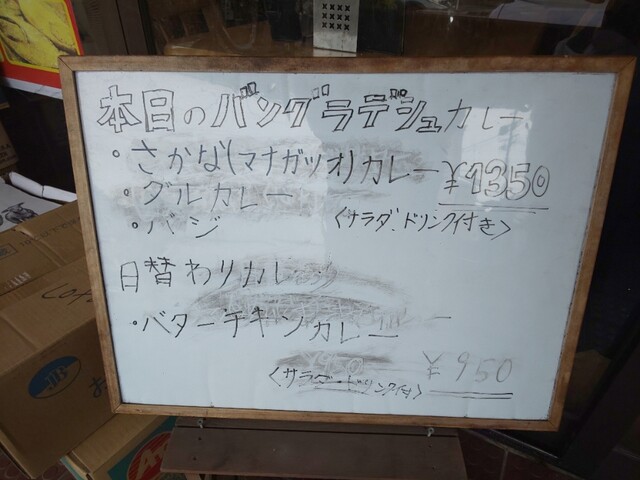 本日のバングラデシュカレー
・さかな(マナガツオ)カレー ¥1350
・ダルカレー
・バジ 〈サラダ、ドリンク付き〉
日替わりカレー
・バターチキンカレー
¥950
〈サラダ・ドリンク付〉